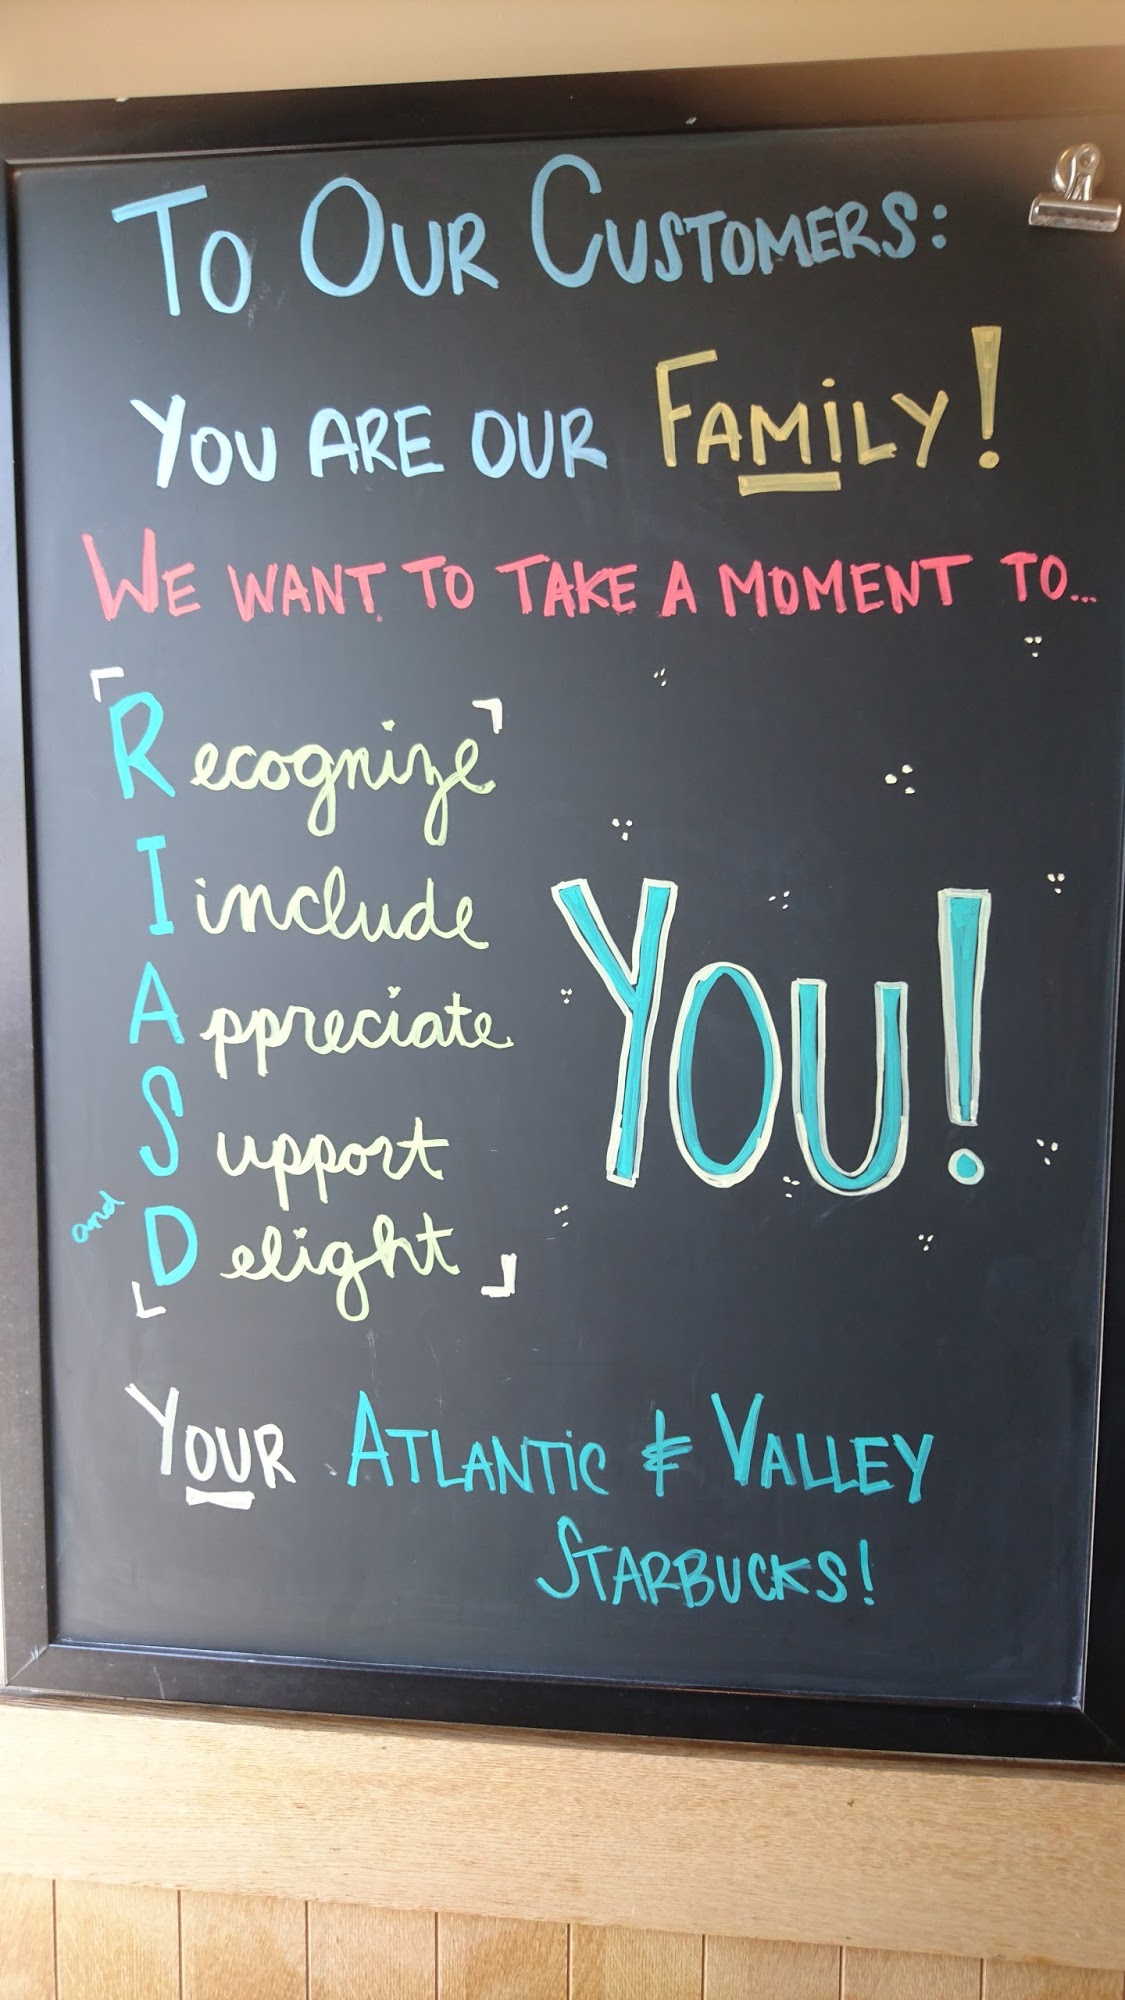 TO OUR CUSTOMERS:
YOU ARE OUR FAMILY!
WE WANT TO TAKE A MOMENT TO...
Recognize
I include
Appreciate
Support
and Delight
YOU!
YOUR ATLANTIC & VALLEY
STARBUCKS!